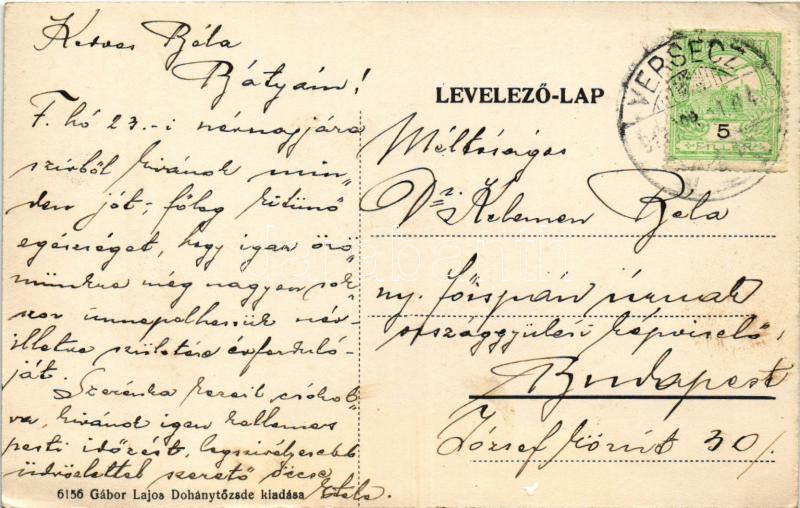 Kedves Béla
Bátyám!
F. hó 23.-i névnapjára
szivből kivánok min-
den jót; főleg kitünő
egészséget, hogy igen örö-
münkre még nagyon sok-
szor ünnepelhessük név-
illetve születése évforduló-
ját.
Szerénke kezeit csókol-
va, kivánok igen kellemes
pesti időzést, legszivélyesebb
üdvözlettel szerető öccse
Etele.
6156 Gábor Lajos Dohánytőzsde kiadása
LEVELEZŐ-LAP
VERSECZ
5
FILLÉR
Méltóságos
Dr. Kelemen Béla
ny. főispán úrnak
országgyűlési képviselő,
Budapest
József körút 30/.
darabanth